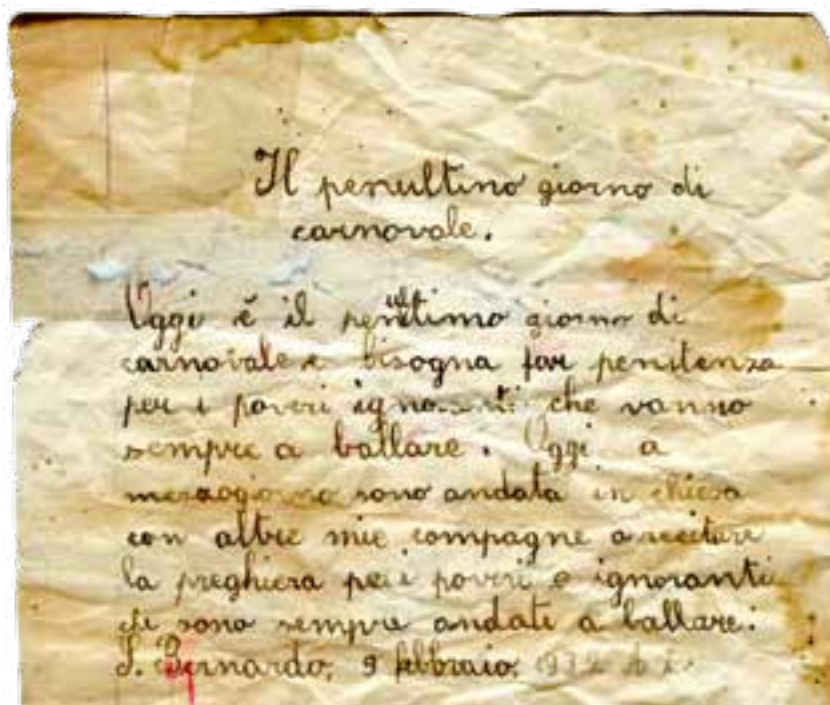 Il penultimo giorno di
carnovale.
Oggi è il penultimo giorno di
carnovale e bisogna far penitenza
per i poveri ignoranti che vanno
sempre a ballare. Oggi a
mezzogiorno sono andata in chiesa
con altre mie compagne a recitare
la preghiera per i poveri e ignoranti
che sono sempre andati a ballare:
S. Bernardo, 9 febbraio, 1932